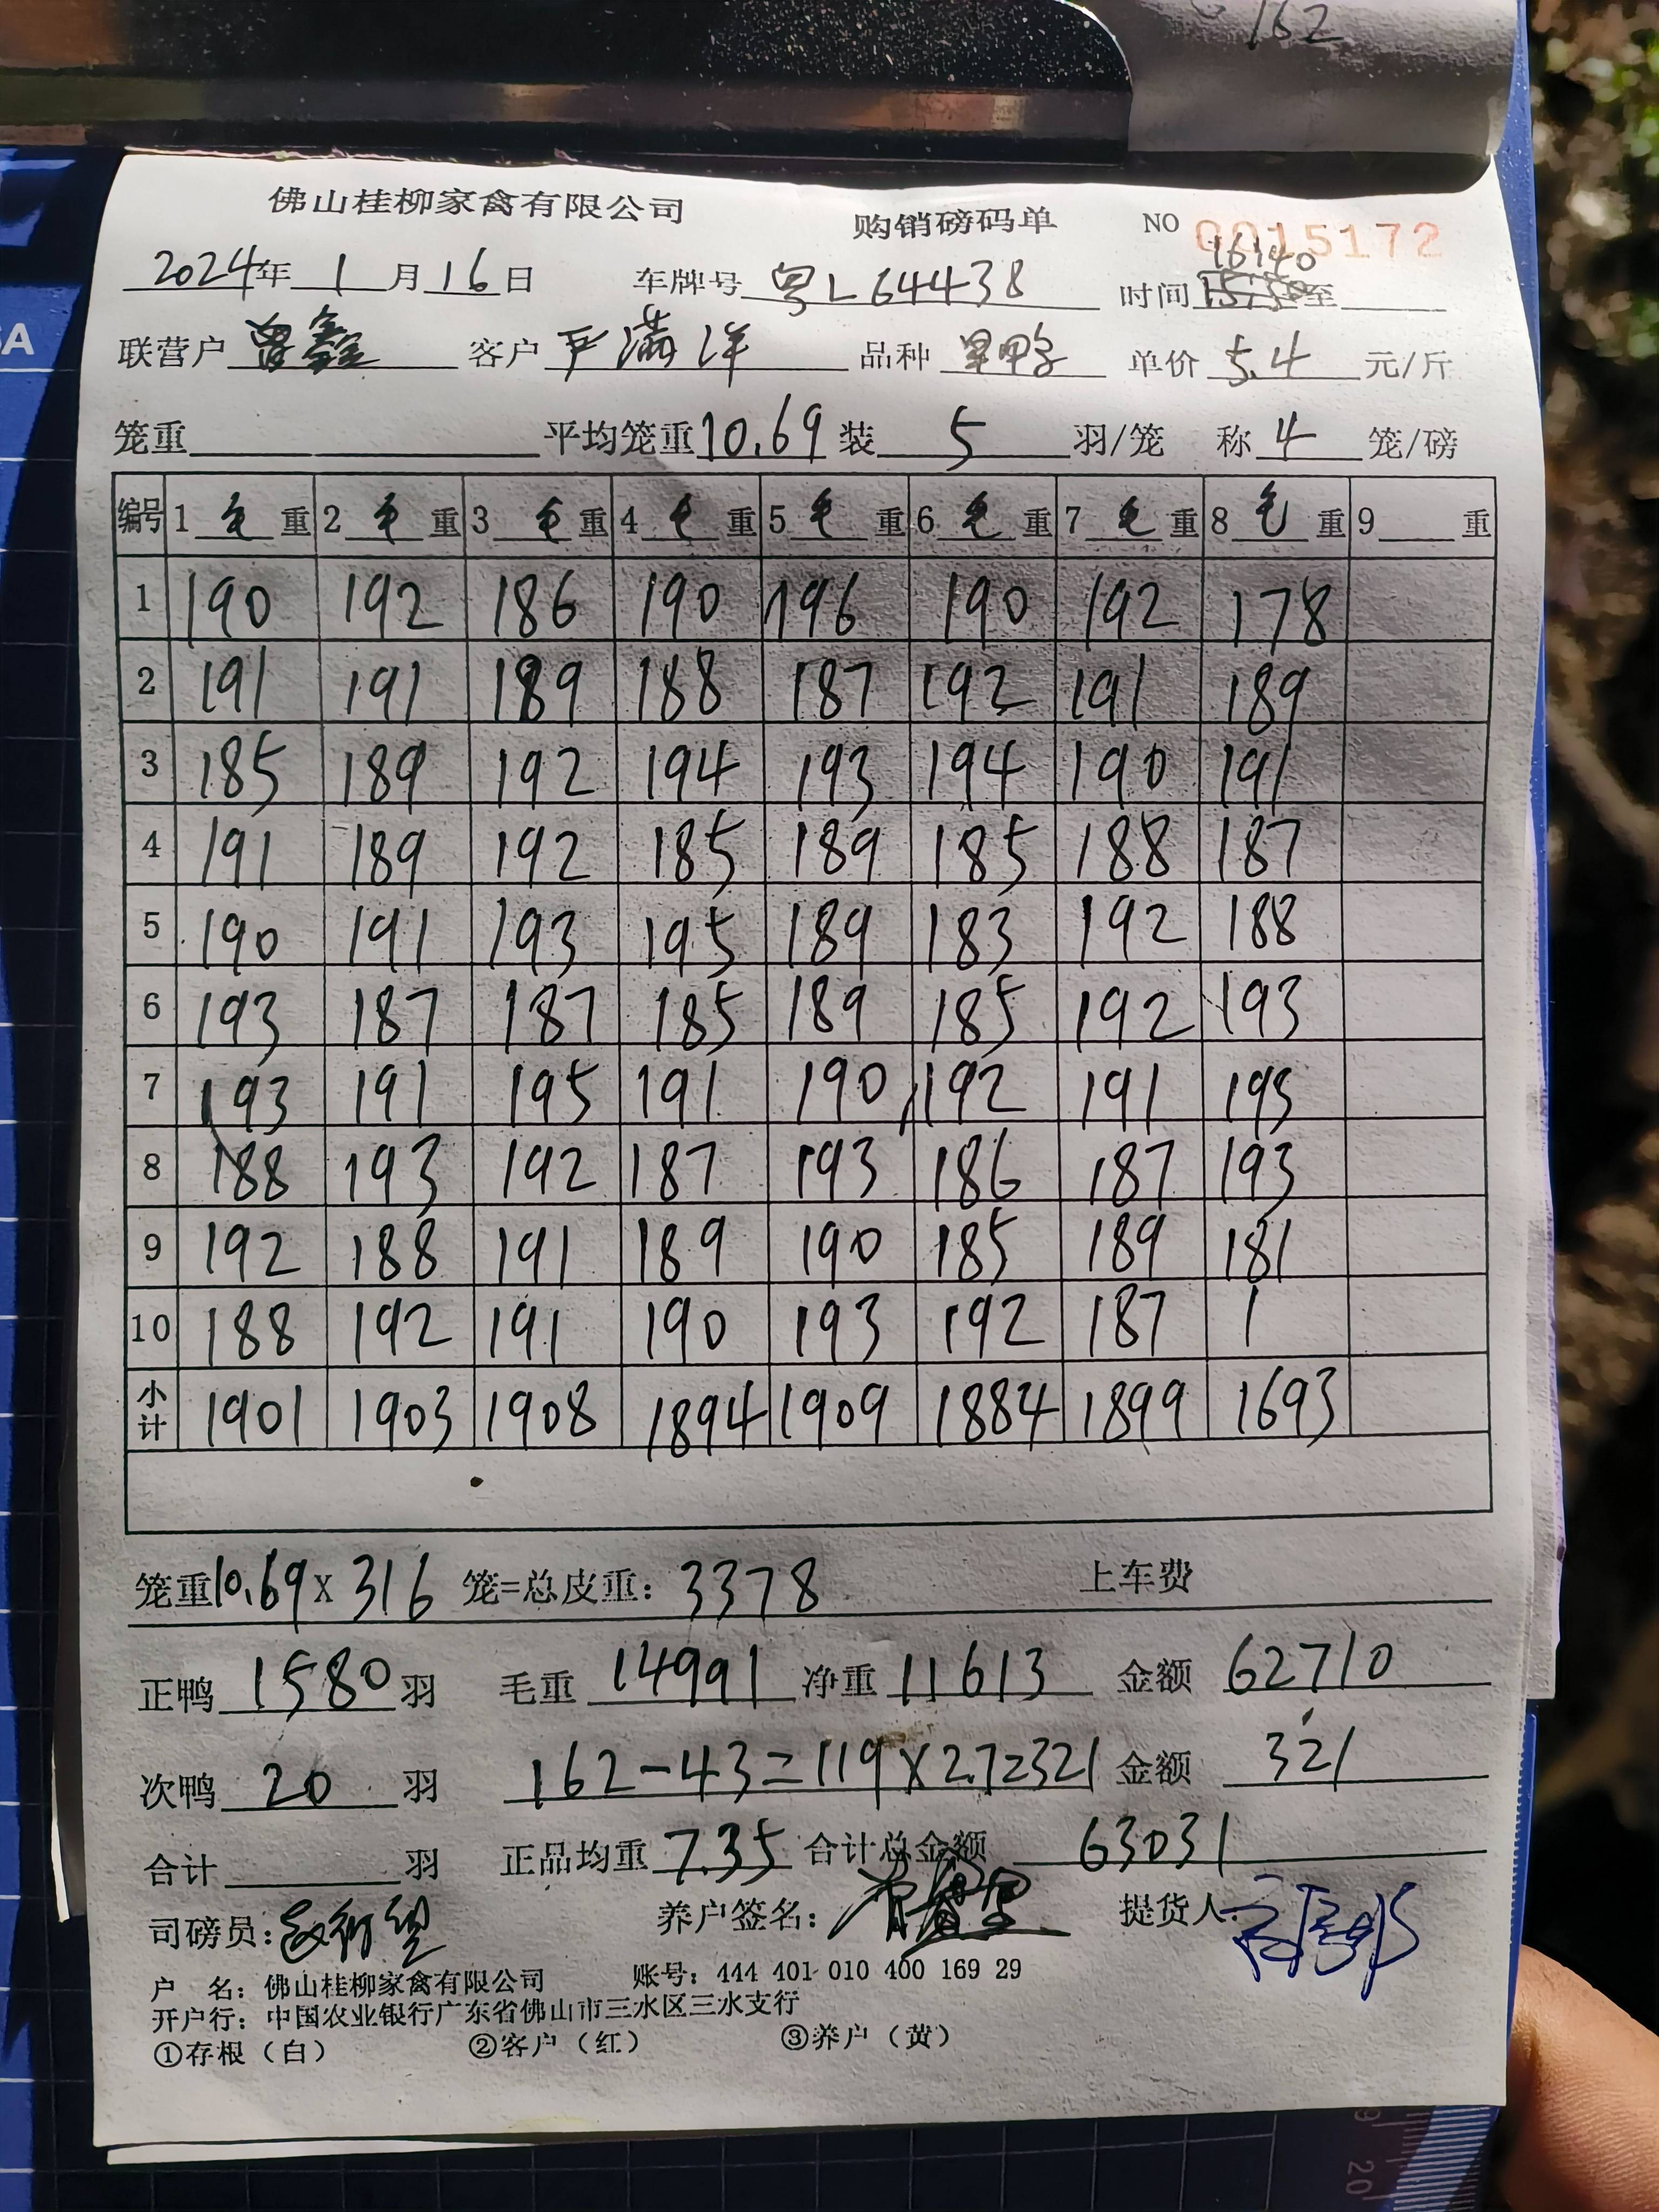 162
佛山桂柳家禽有限公司 购销磅码单 NO 0015172
16:40
2024年 1 月 16 日 车牌号 粤L64438 时间 至
联营户 曾鑫 客户 严满洋 品种 旱鸭 单价 5.4 元/斤
笼重 平均笼重 10.69 装 5 羽/笼 称 4 笼/磅
编号 1 毛 重 2 毛 重 3 毛 重 4 毛 重 5 毛 重 6 毛 重 7 毛 重 8 毛 重 9 重
1 190 192 186 190 196 190 192 178
2 191 191 189 188 187 192 191 189
3 185 189 192 194 193 194 190 191
4 191 189 192 185 189 185 188 187
5 190 191 193 195 189 183 192 188
6 193 187 187 185 189 185 192 193
7 193 191 195 191 190 192 191 193
8 188 193 192 187 193 186 187 193
9 192 188 191 189 190 185 189 181
10 188 192 191 190 193 192 187 1
小计 1901 1903 1908 1894 1909 1884 1899 1693
笼重 10.69 X 316 笼=总皮重: 3378 上车费
正鸭 1580 羽 毛重 14991 净重 11613 金额 62710
次鸭 20 羽 162-43=119×2.7=321 金额 321
合计 羽 正品均重 7.35 合计总金额 63031
司磅员: 养户签名: 提货人:
户 名: 佛山桂柳家禽有限公司 账号: 444 401 010 400 169 29
开户行: 中国农业银行广东省佛山市三水区三水支行
①存根（白） ②客户（红） ③养户（黄）